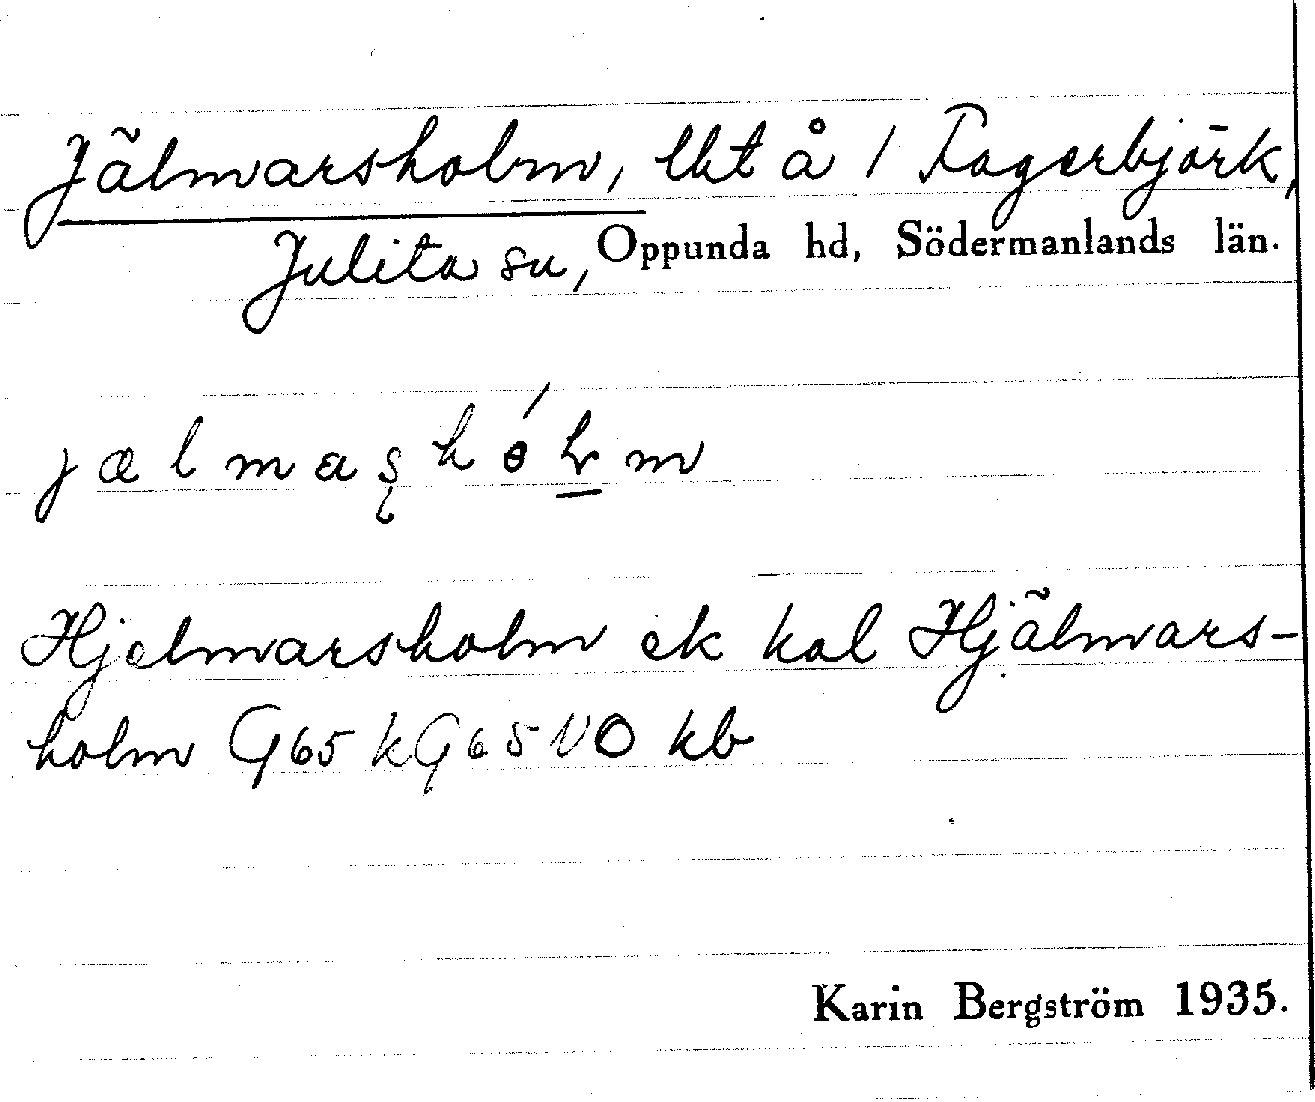 Jälmarsholm, lht å 1 Fagerbjörk,
Julita sn, Oppunda hd, Södermanlands län.
jælmaʂhólm
Hjelmarsholm ek kal Hjälmars-
holm G65 kG65NO kb
Karin Bergström 1935.